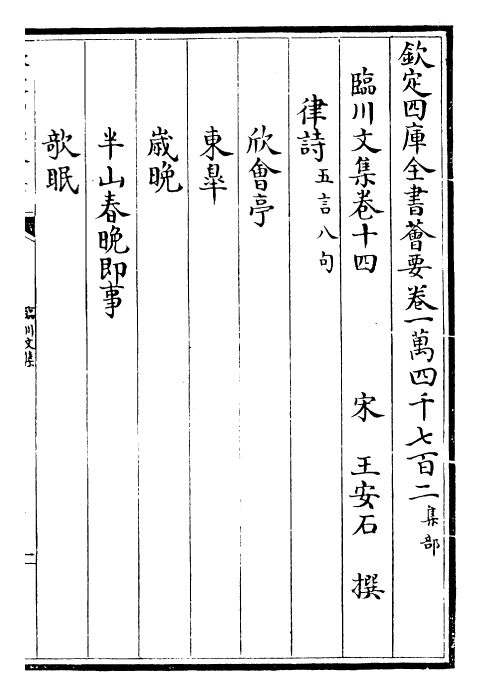 欽定四庫全書薈要卷一萬四千七百二集部
臨川文集卷十四 宋 王安石 撰
律詩五言八句
欣會亭
東臯
歲晚
半山春晚即事
欹眠
臨川文集